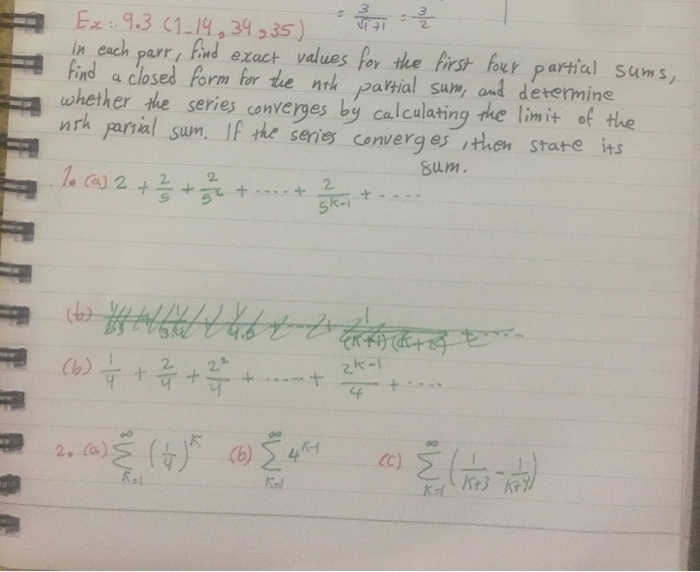 = 3/√1+1 = 3/2
Ex: 9.3 (1-14, 34, 35)
In each parr, find exact values for the first four partial sums,
find a closed form for the nth partial sum, and determine
whether the series converges by calculating the limit of the
nth partial sum. If the series converges, then state its
sum.
1. (a) 2 + 2/5 + 2/5² + ..... + 2/5^(k-1) + ....
(b)
(b) 1/4 + 2/4 + 2²/4 + ..... + 2^(k-1)/4 + ....
2. (a) ∑_(k=1)^∞ (1/4)^k (b) ∑_(k=1)^∞ 4^(k-1) (c) ∑_(k=1)^∞ (1/(k+3) - 1/(k+4))